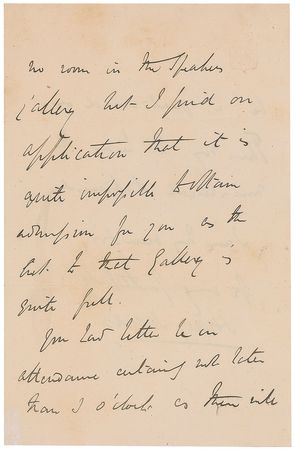 no room in the Speakers
gallery but I find on
application that it is
quite impossible to obtain
admission for you as the
list to that Gallery is
quite full.
You had better be in
attendance certainly not later
than 3 o'clock as there will